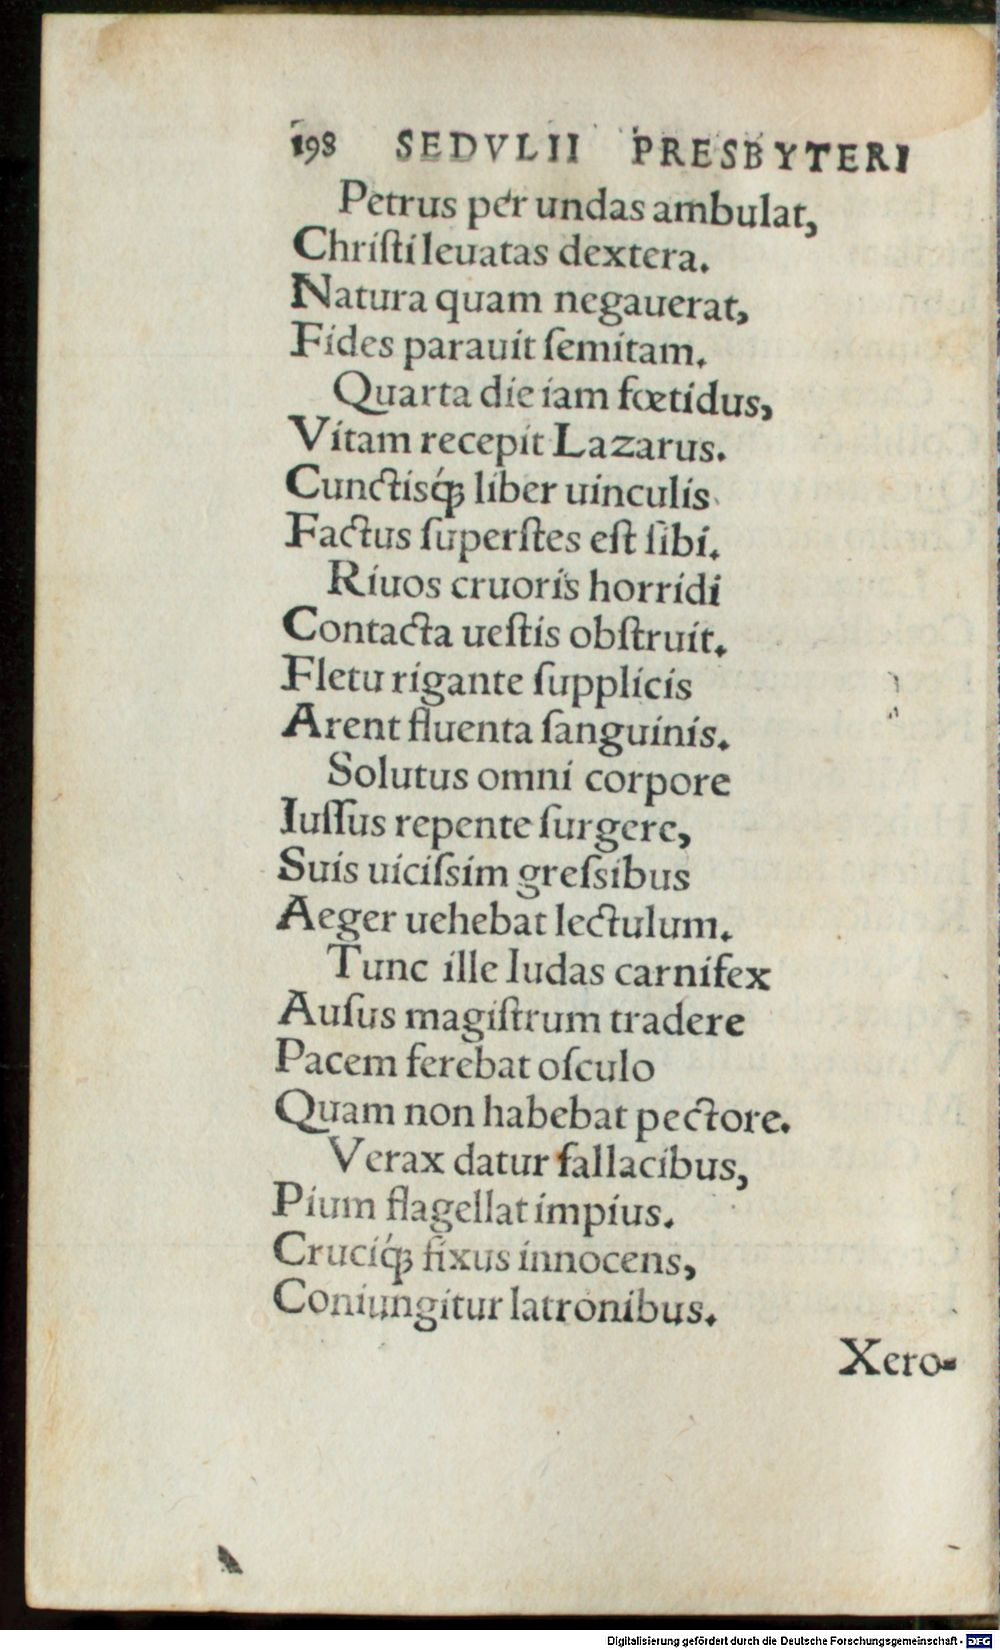 198 SEDVLII PRESBYTERI
Petrus per undas ambulat,
Chriſti leuatas dextera.
Natura quam negauerat,
Fides parauit ſemitam.
Quarta die iam fœtidus,
Vitam recepit Lazarus.
Cunctisq́ꝫ liber uinculis
Factus ſuperſtes eſt ſibi.
Riuos cruoris horridi
Contacta ueſtis obſtruit.
Fletu rigante ſupplicis
Arent fluenta ſanguinis.
Solutus omni corpore
Iuſſus repente ſurgere,
Suis uiciſsim greſsibus
Aeger uehebat lectulum.
Tunc ille Iudas carnifex
Auſus magiſtrum tradere
Pacem ferebat oſculo
Quam non habebat pectore.
Verax datur fallacibus,
Pium flagellat impius.
Cruciq́ꝫ fixus innocens,
Coniungitur latronibus.
Xero-
Digitalisierung gefördert durch die Deutsche Forschungsgemeinschaft - DFG